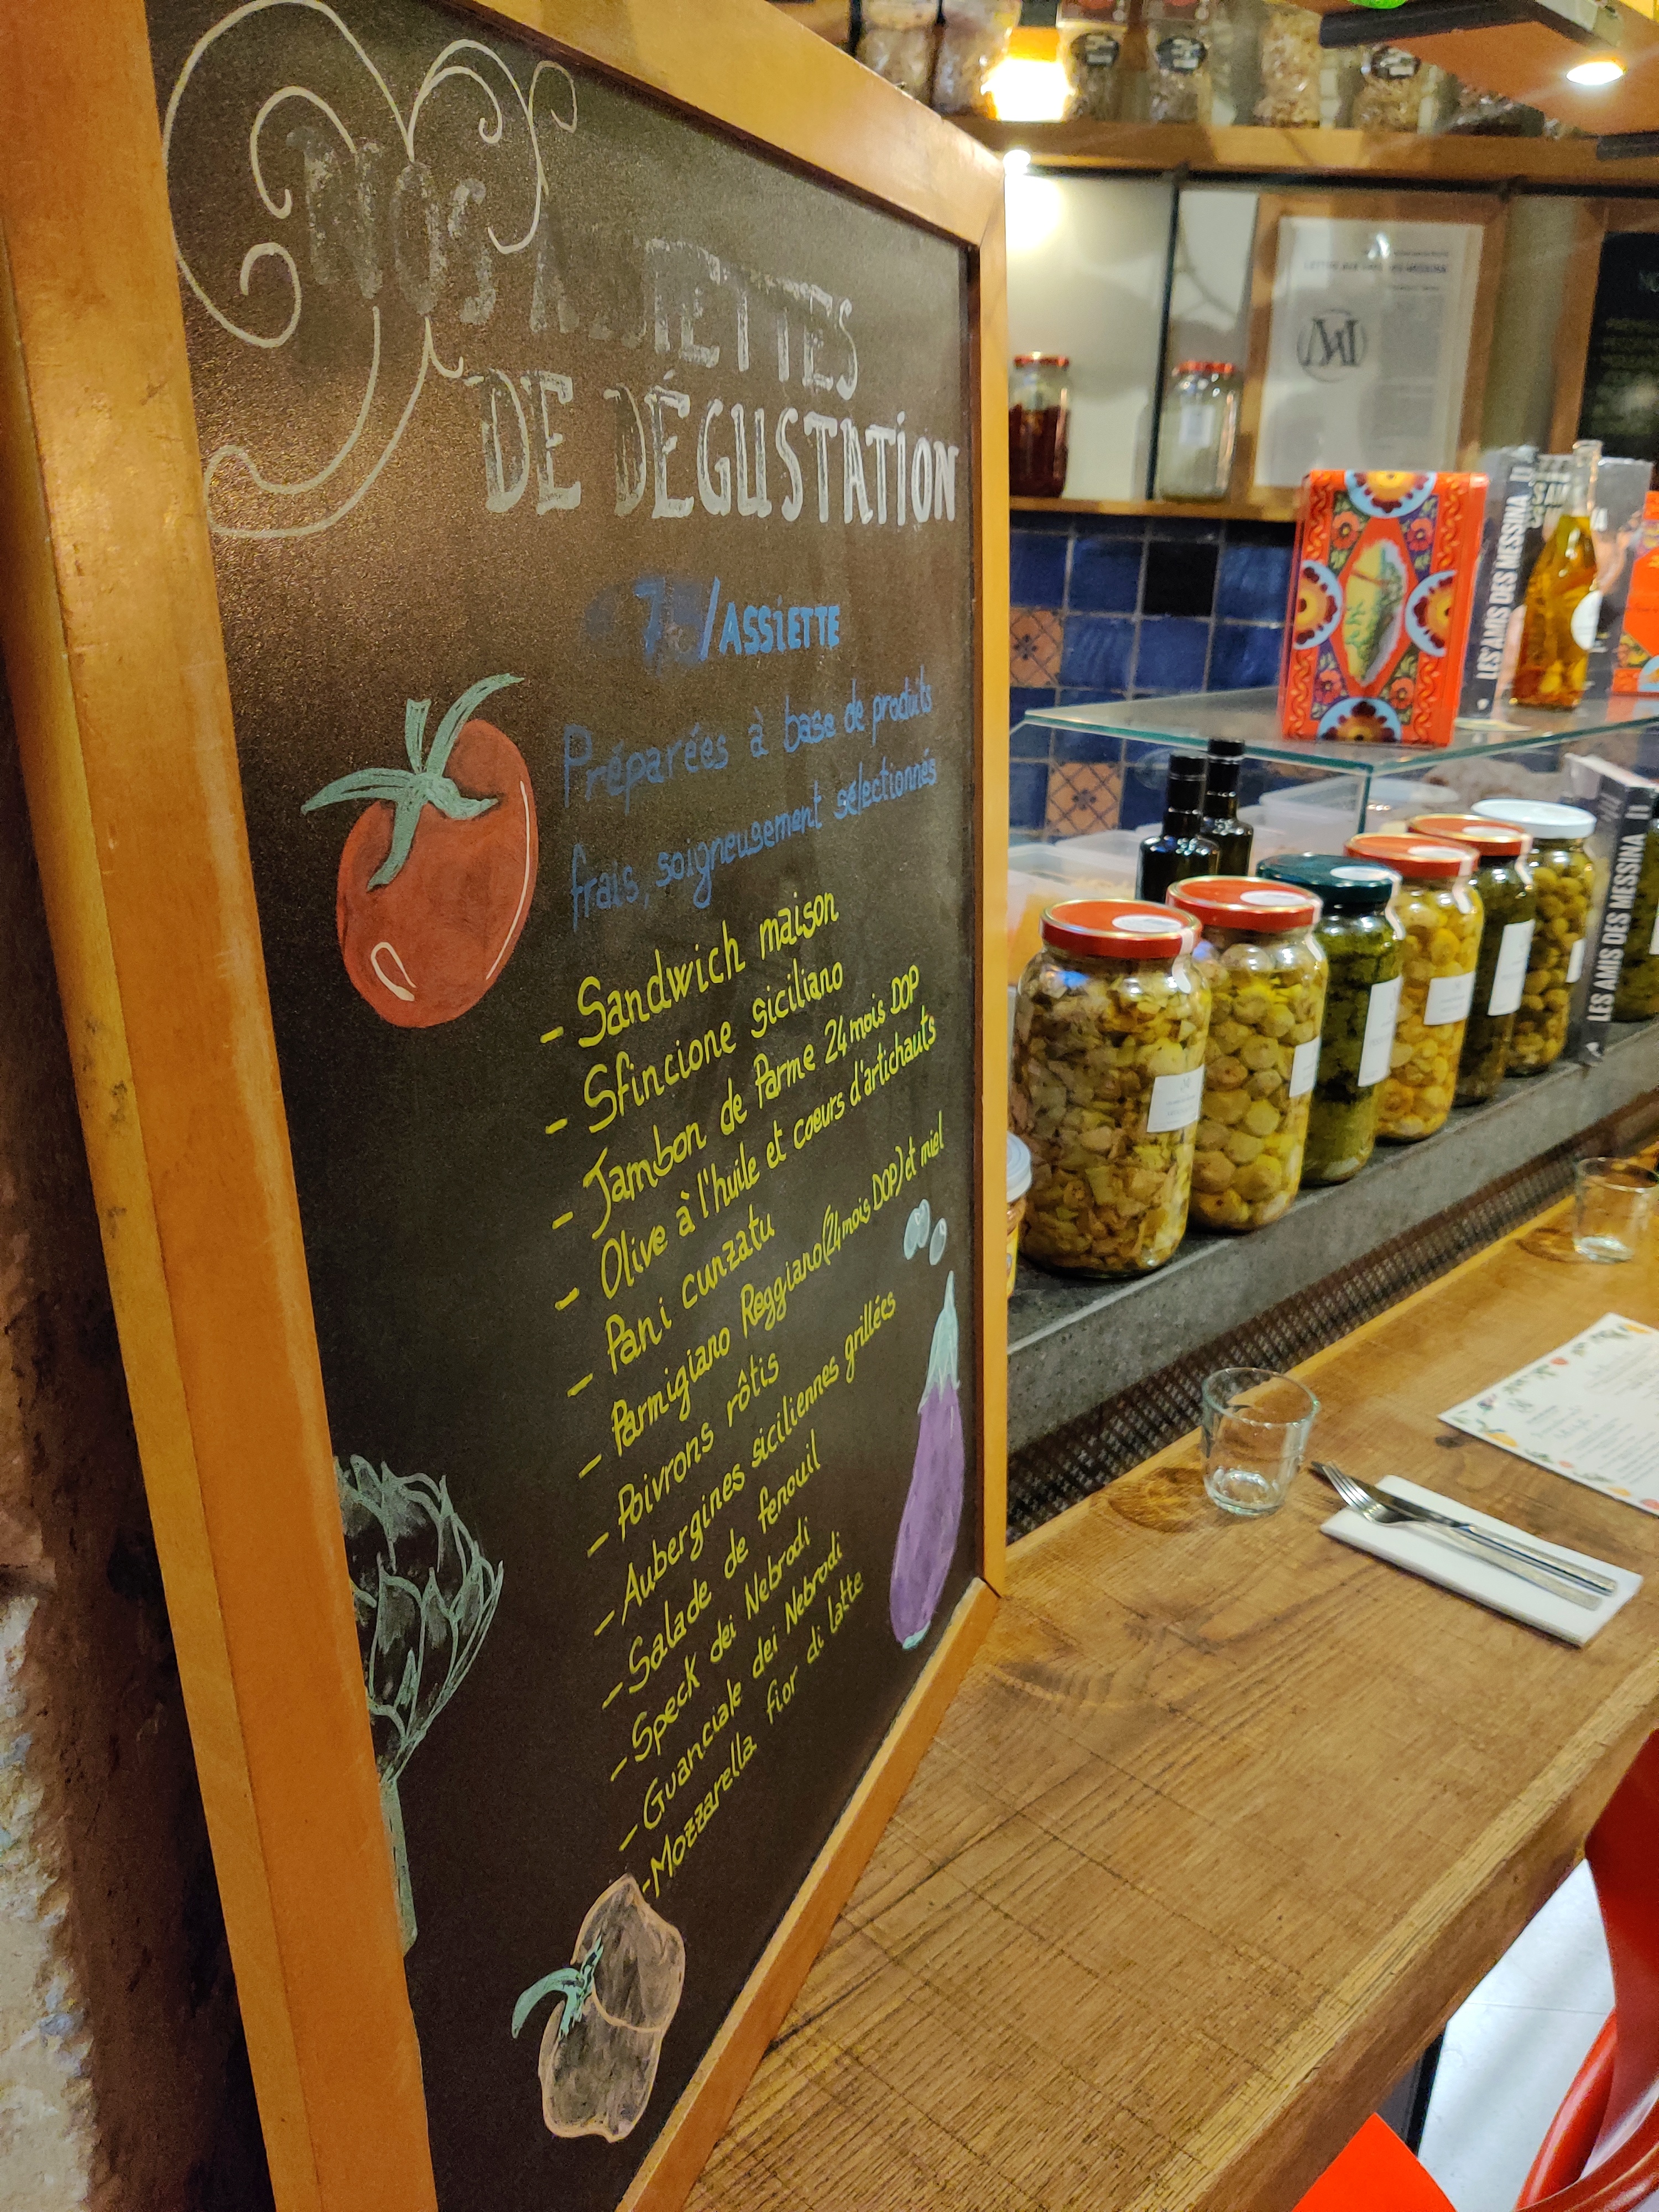 NOS ASSIETTES
DE DÉGUSTATION
/ASSIETTE
Préparées à base de produits
frais, soigneusement sélectionnés
- Sandwich maison
- Sfincione siciliano
- Jambon de Parme 24 mois DOP
- Olive à l'huile et coeurs d'artichauts
- Pani cunzatu
- Parmigiano Reggiano (24 mois DOP) et miel
- Poivrons rôtis
- Aubergines siciliennes grillées
- Salade de fenouil
- Speck dei Nebrodi
- Guanciale dei Nebrodi
- Mozzarella fior di latte
LES AMIS DES MESSINA II
LES AMIS DES MESSINA II